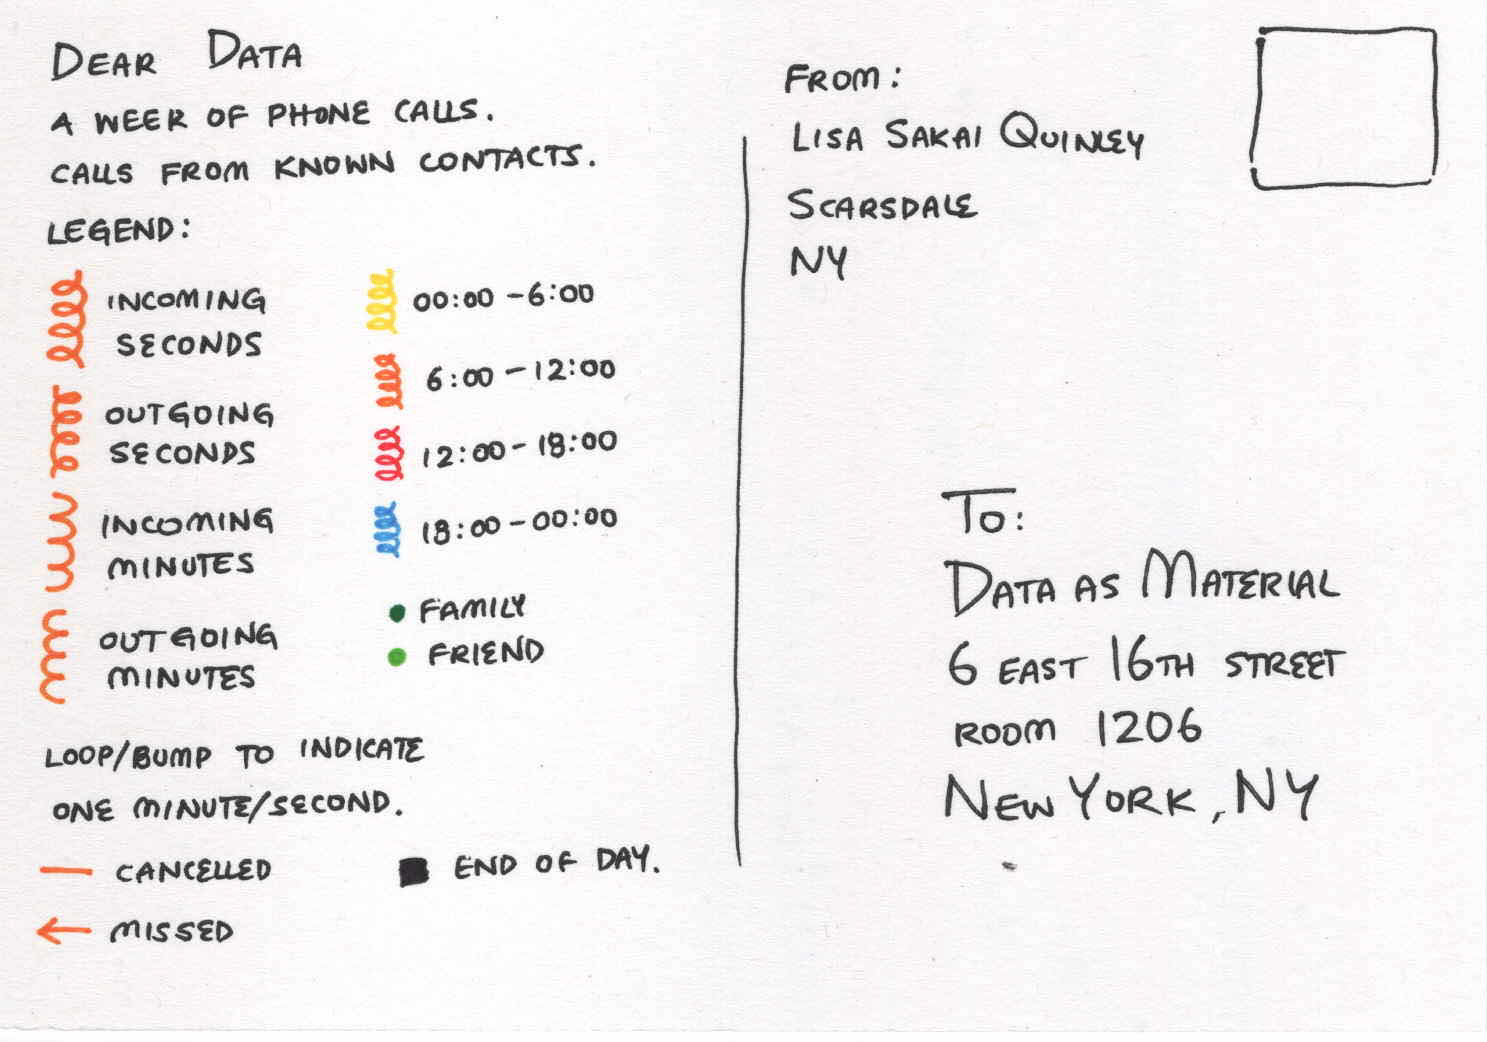 DEAR DATA
A WEEK OF PHONE CALLS.
CALLS FROM KNOWN CONTACTS.
LEGEND:
INCOMING
SECONDS
OUTGOING
SECONDS
INCOMING
MINUTES
OUTGOING
MINUTES
00:00 - 6:00
6:00 - 12:00
12:00 - 18:00
18:00 - 00:00
FAMILY
FRIEND
LOOP/BUMP TO INDICATE
ONE MINUTE/SECOND.
CANCELLED
MISSED
END OF DAY.
FROM:
LISA SAKAI QUINLEY
SCARSDALE
NY
TO:
DATA AS MATERIAL
6 EAST 16TH STREET
ROOM 1206
NEW YORK, NY